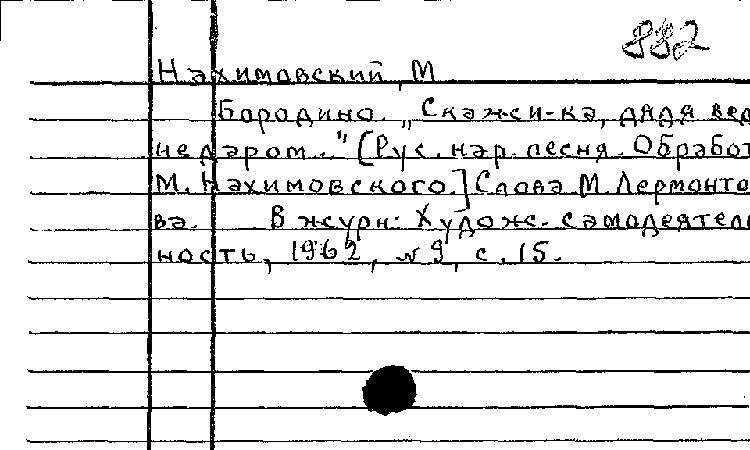 882
Нахимовский, М
Бородино. „Скажи-ка, дядя вед
недаром..." [Рус. нар. песня. Обработ
М. Нахимовского.] Слова М. Лермонто
ва. В журн: Худож. самодеятель
ность, 1962, № 9, с. 15.